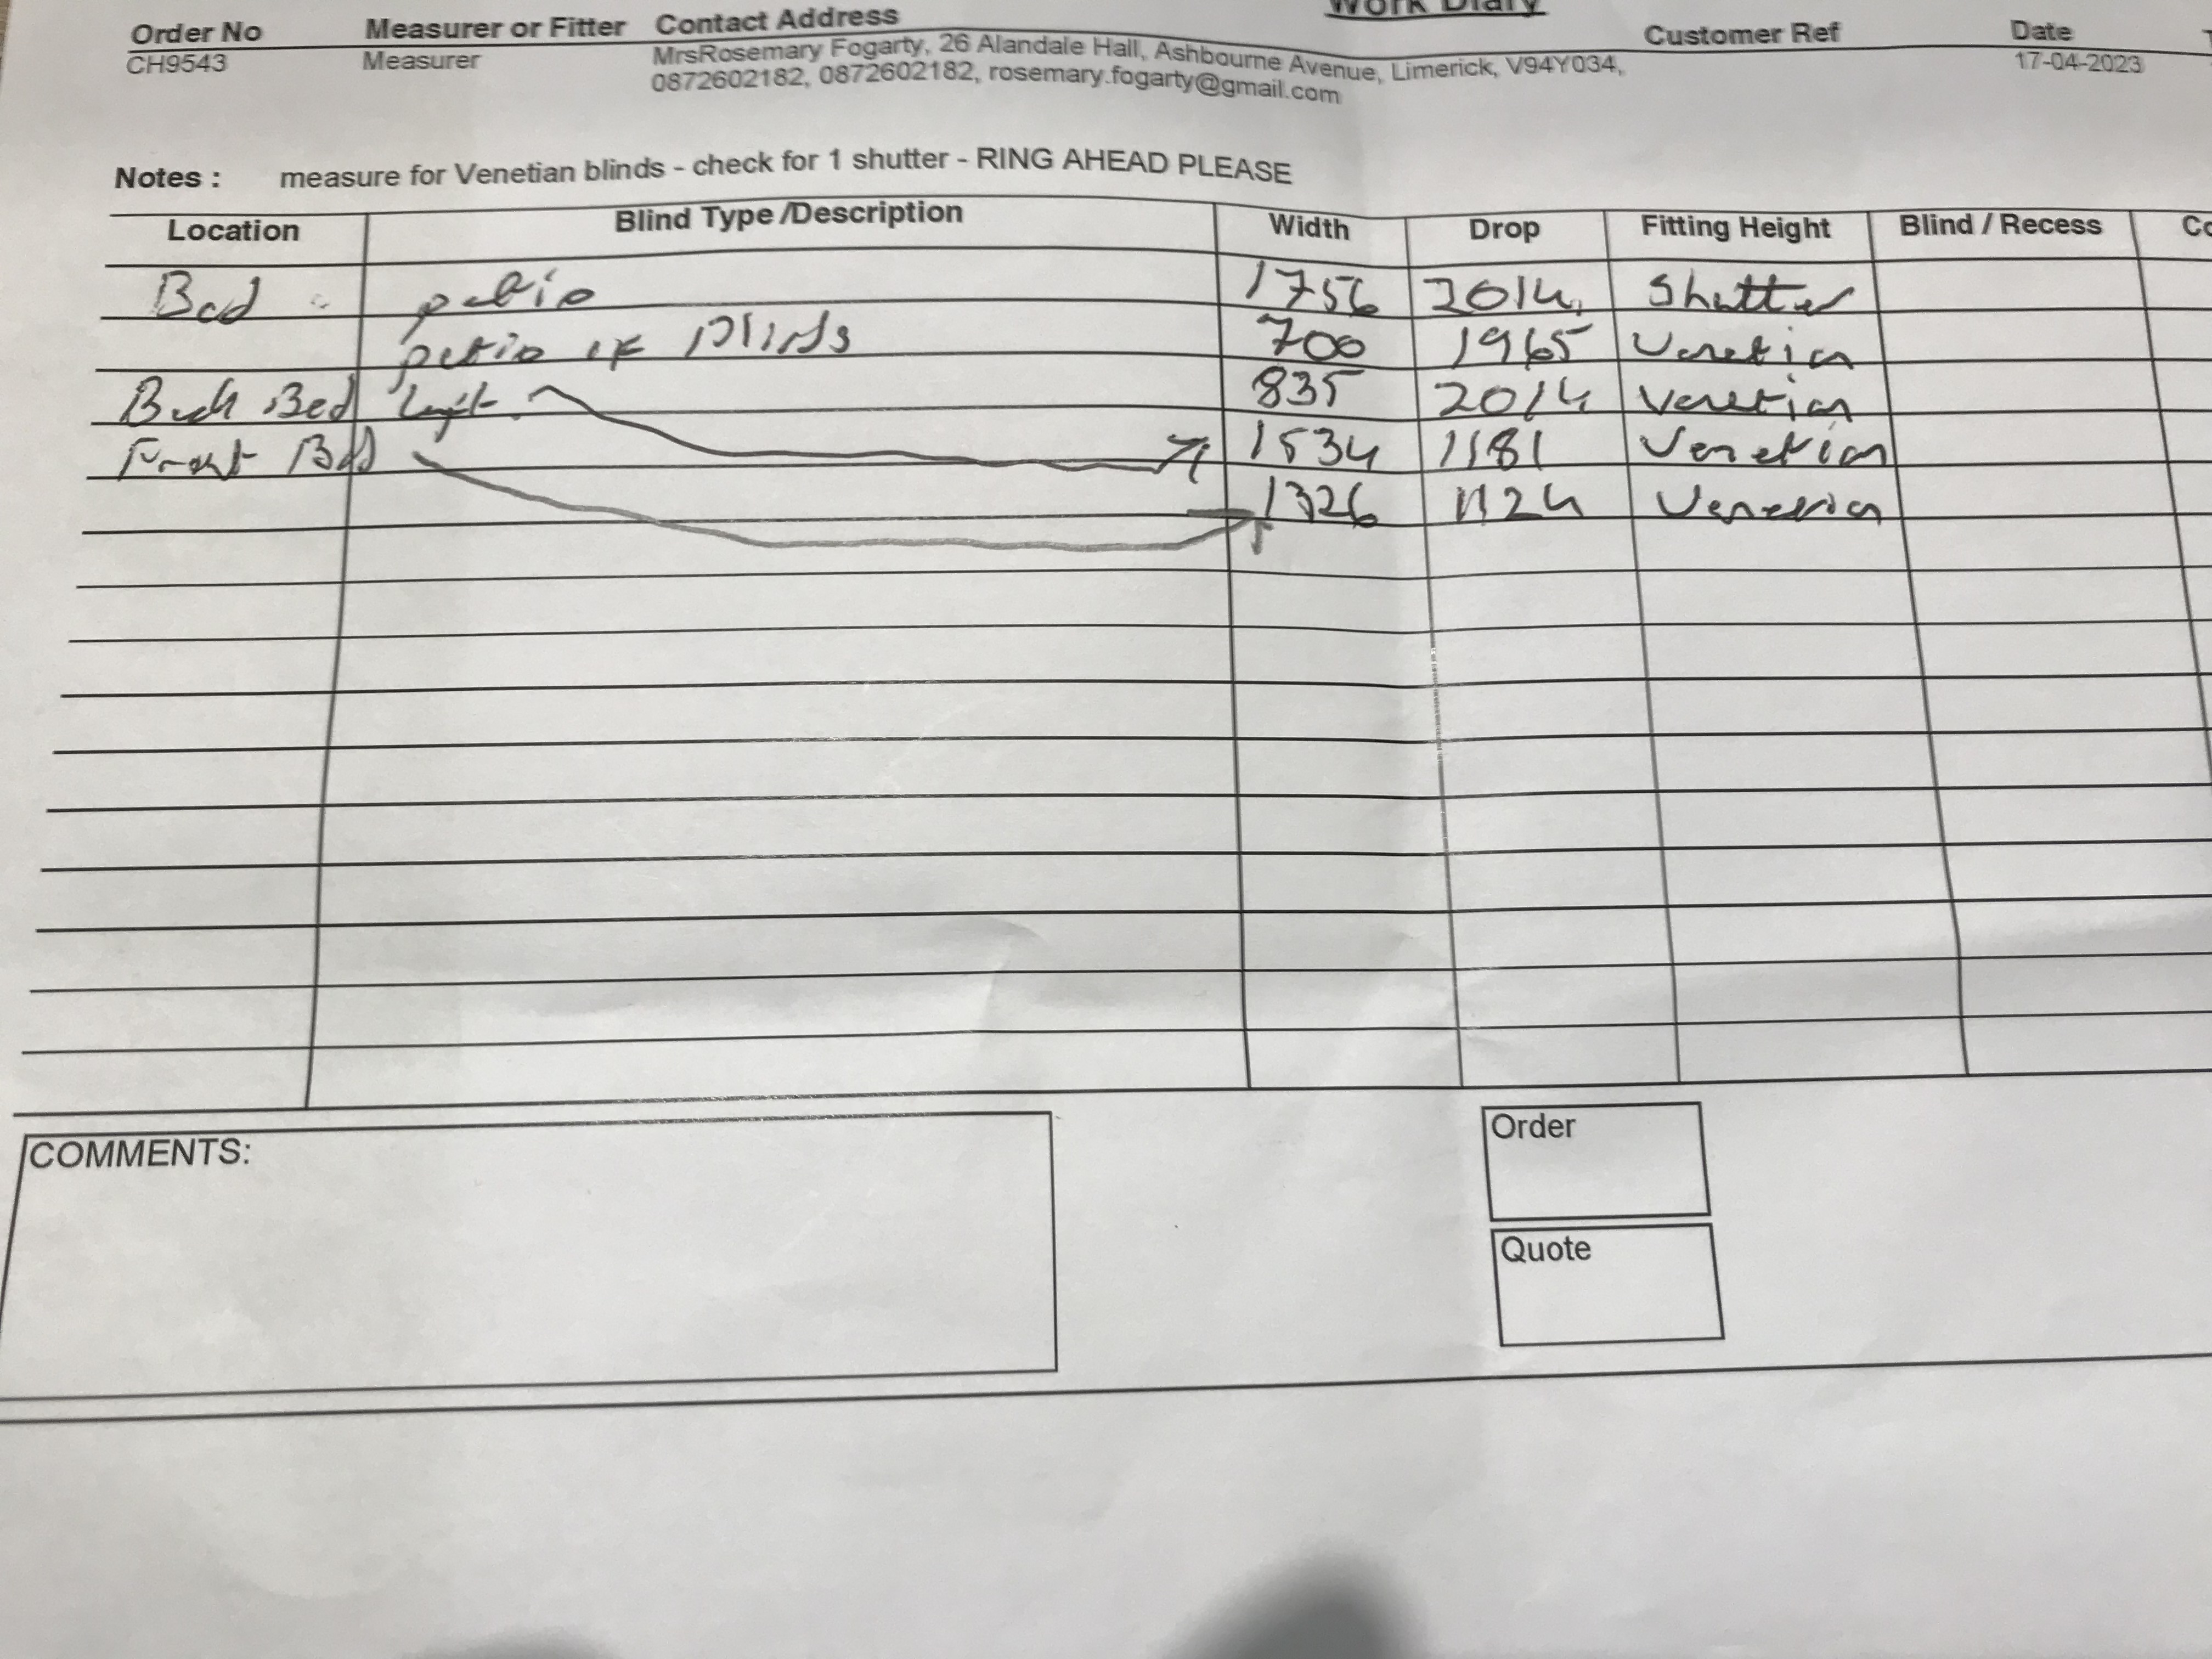 Work Diary
Order No Measurer or Fitter Contact Address Customer Ref Date
CH9543 Measurer MrsRosemary Fogarty, 26 Alandale Hall, Ashbourne Avenue, Limerick, V94Y034, 17-04-2023
0872602182, 0872602182, rosemary.fogarty@gmail.com
Notes : measure for Venetian blinds - check for 1 shutter - RING AHEAD PLEASE
Location Blind Type /Description Width Drop Fitting Height Blind / Recess Co
Bed patio 1756 2014 Shutter
patio if Blinds 700 1965 Venetian
Back Bed left 835 2014 Venetian
Front Bed 1534 1181 Venetian
1326 1124 Venetian
COMMENTS:
Order
Quote